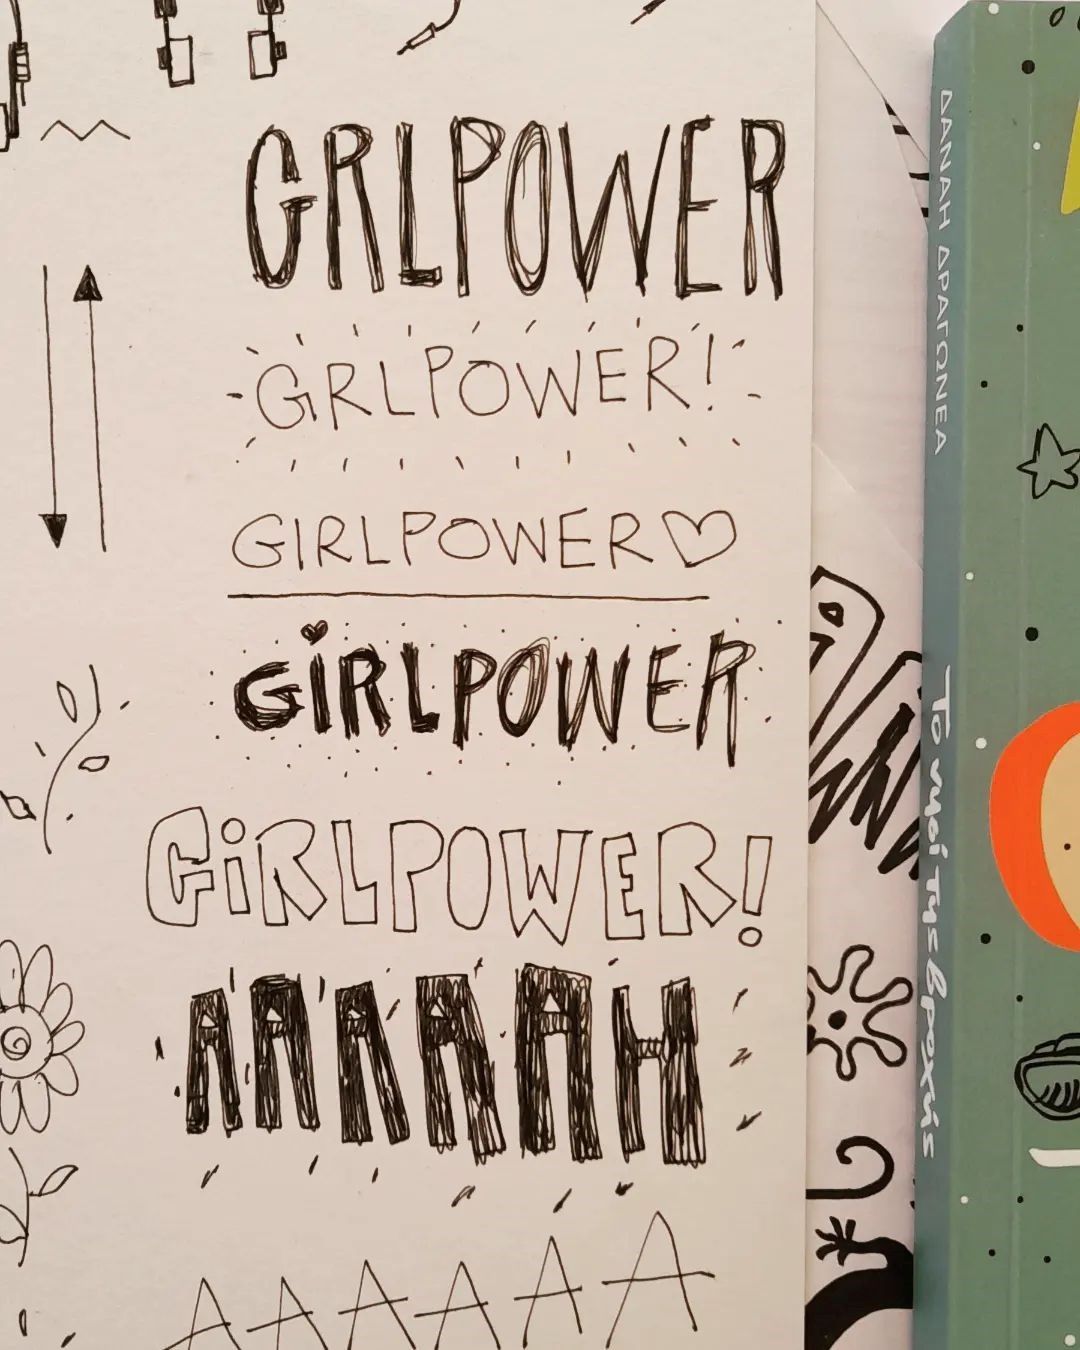 GRLPOWER
GRLPOWER!
GIRLPOWER♡
GİRLPOWER
GiRLPOWER!
AAAAAH
AAAAAA
ΔΑΝΑΗ ΔΡΑΓΩΝΕΑ
Το νησί της βροχής